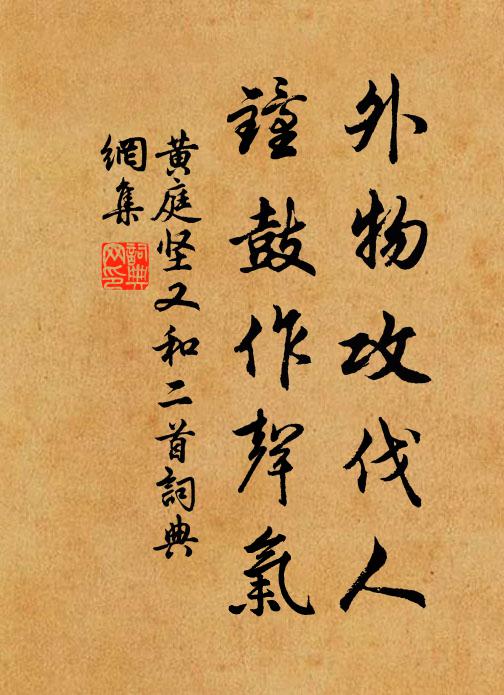 外物攻伐人
鐘鼓作聲氣
黄庭坚又和二首詞典
網集
詞典
网印